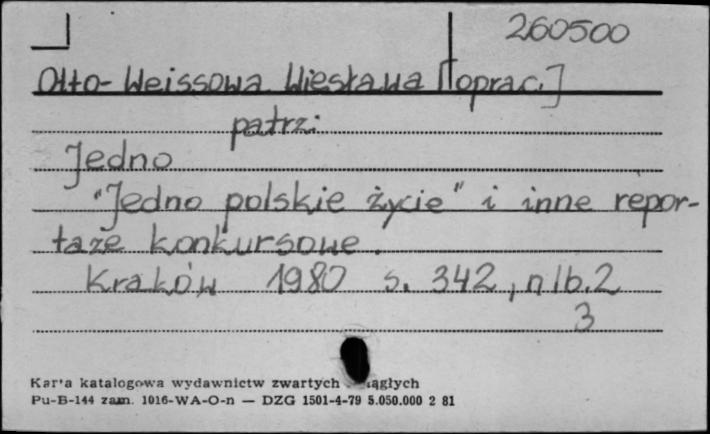 260500
Otto-Weissowa Wiesława [oprac.]
patrz:
Jedno
"Jedno polskie życie" i inne repor-
taże konkursowe.
Kraków 1980 s. 342, nlb. 2
3
Karta katalogowa wydawnictw zwartych ciągłych
Pu-B-144 zam. 1016-WA-O-n — DZG 1501-4-79 5.050.000 2 81